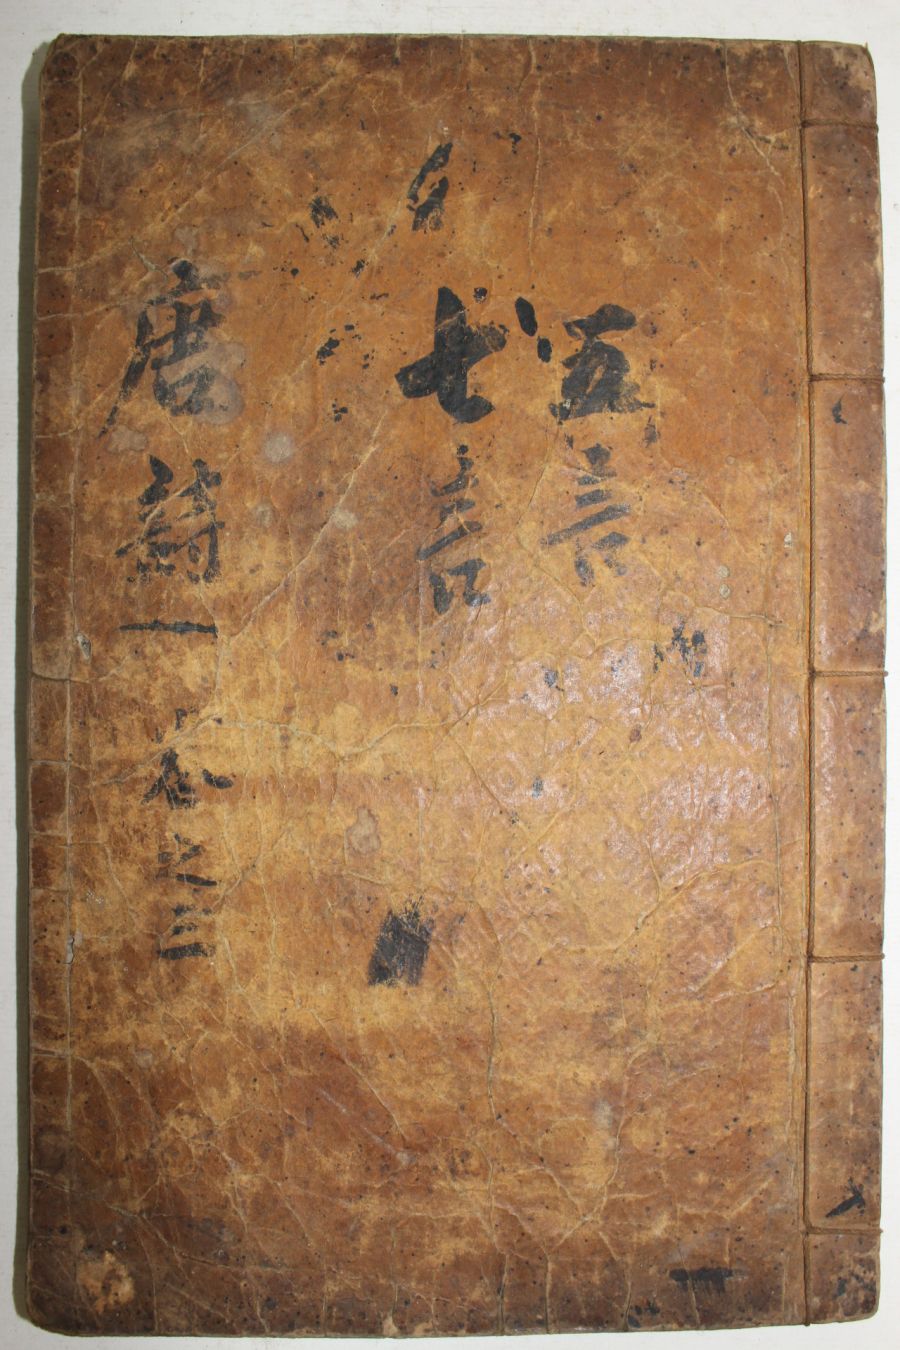 五言
七言
唐詩一 卷之三